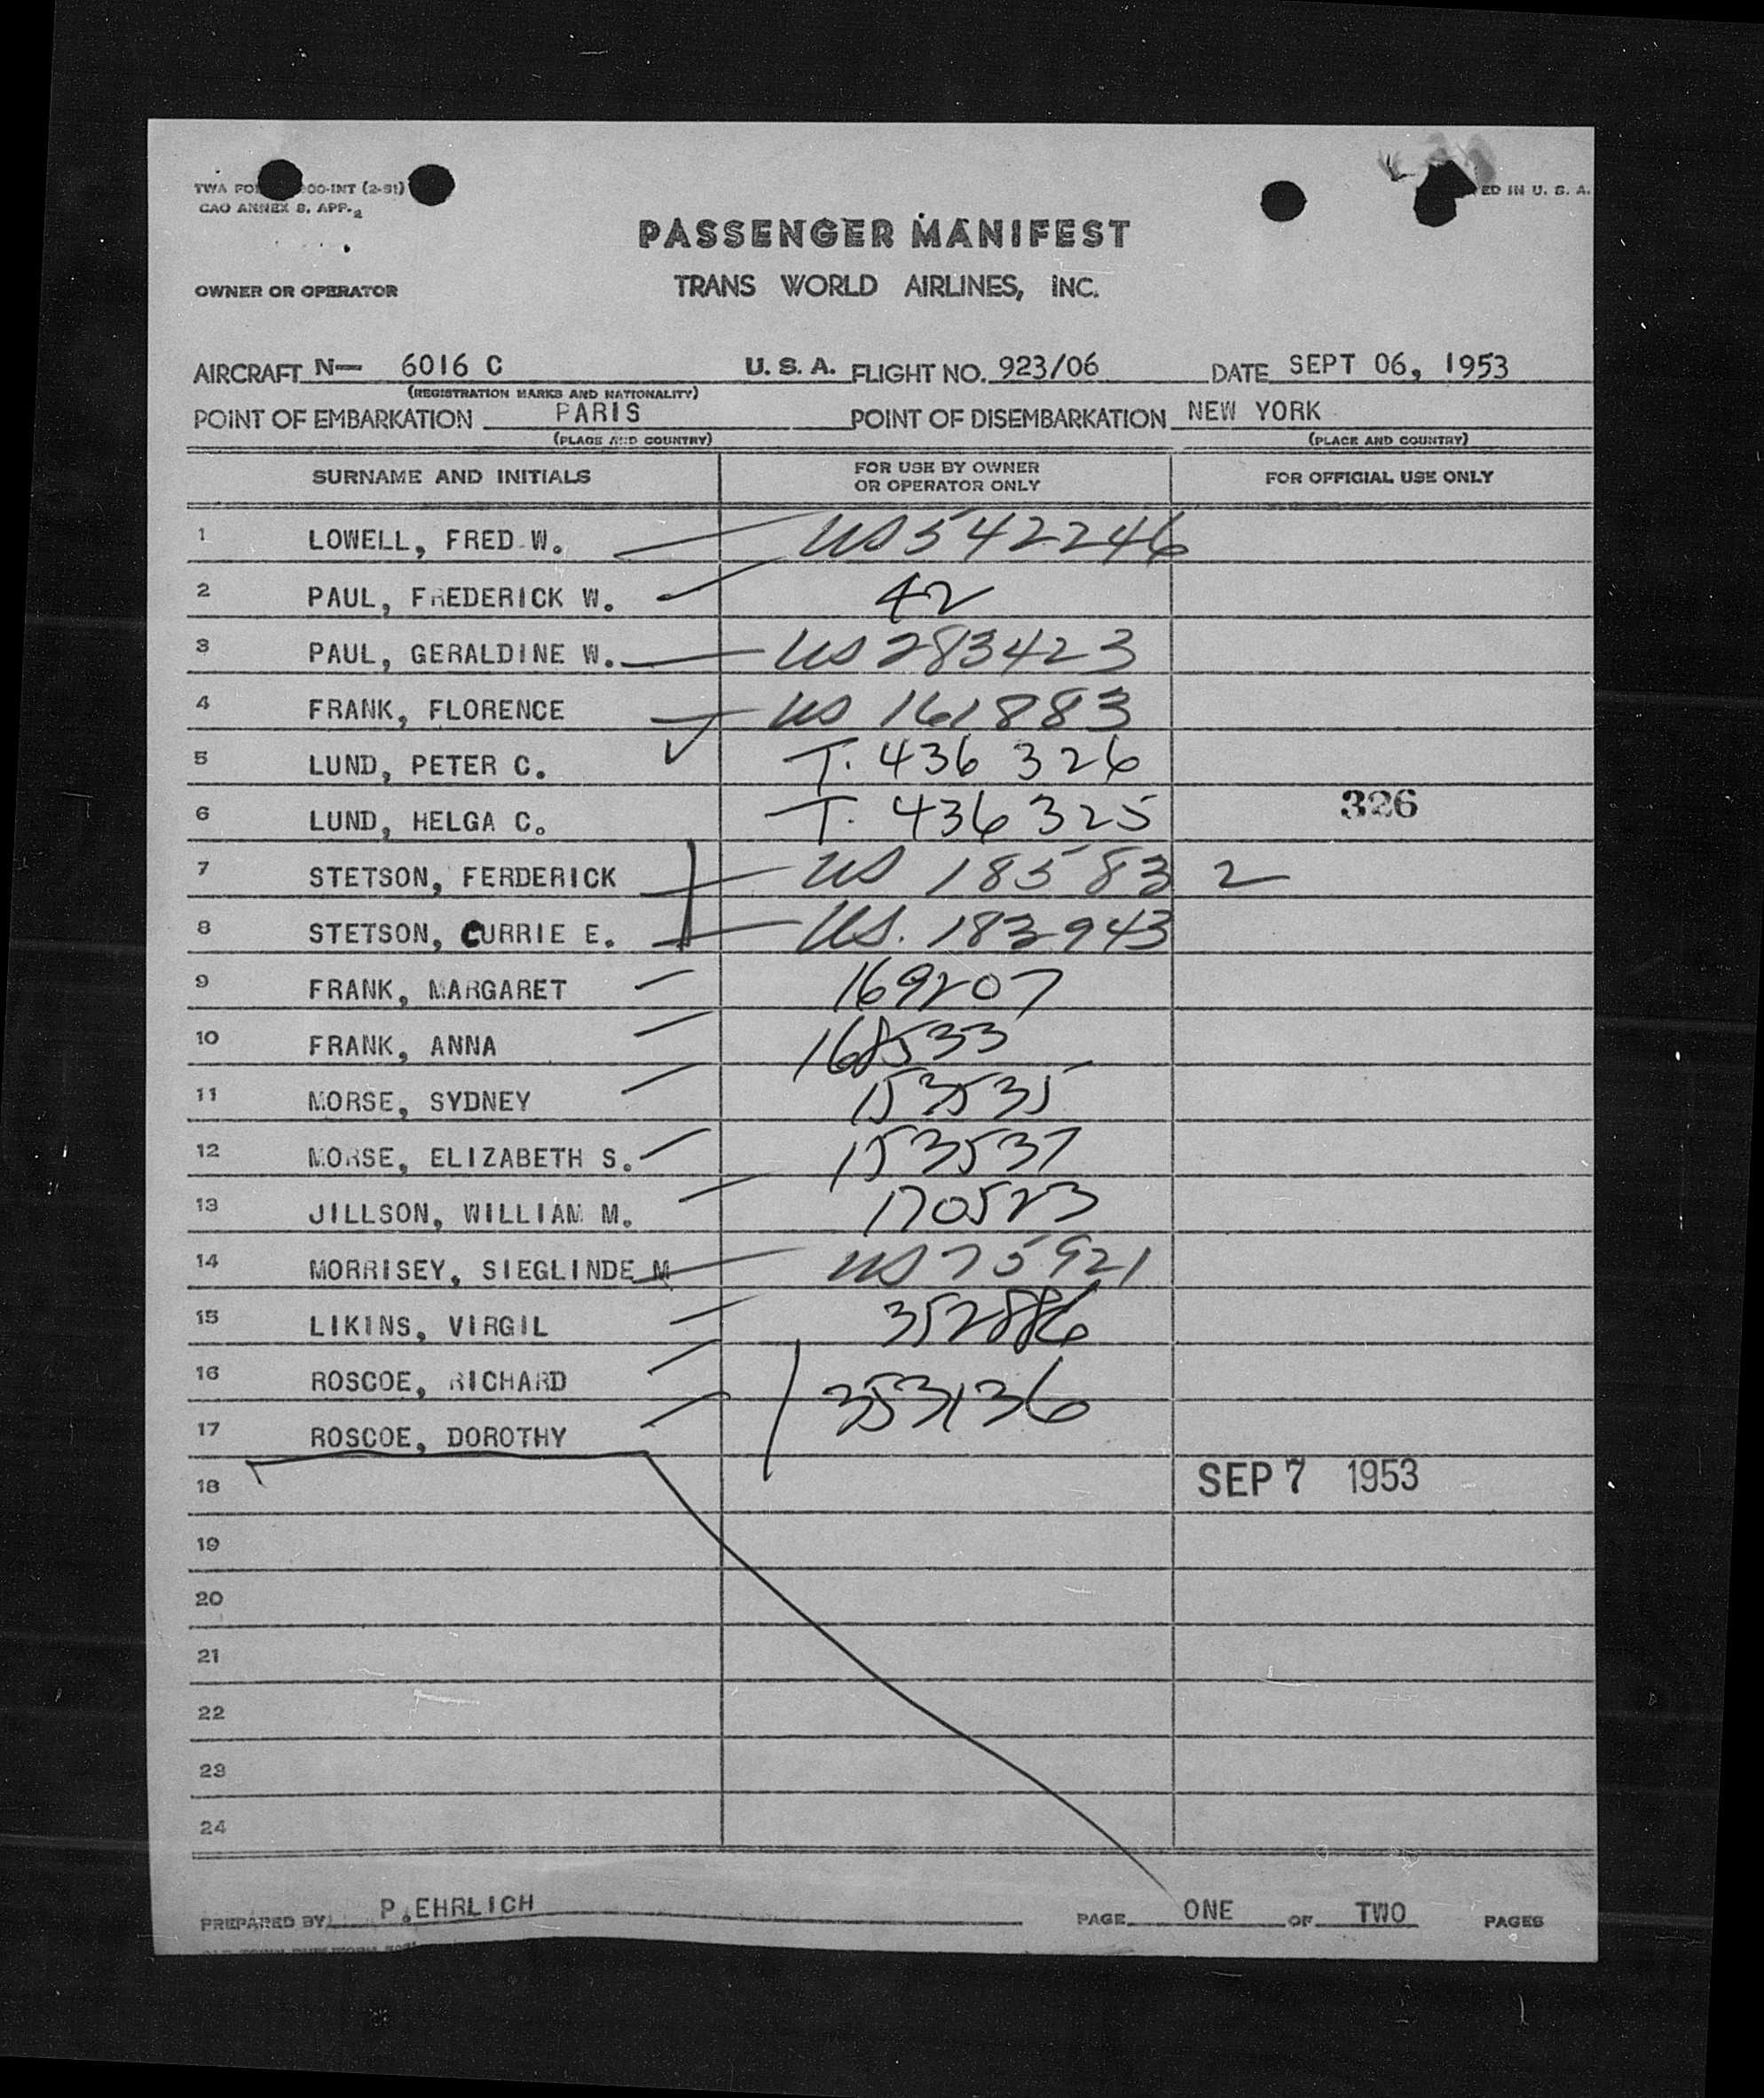 TWA FO 00-INT (2-51)
ED IN U. S. A.
CAO ANNEX 8, APP. 2
PASSENGER MANIFEST
OWNER OR OPERATOR TRANS WORLD AIRLINES, INC.
AIRCRAFT N— 6016 C U. S. A. FLIGHT NO. 923/06 DATE SEPT 06, 1953
(REGISTRATION MARKS AND NATIONALITY)
POINT OF EMBARKATION PARIS POINT OF DISEMBARKATION NEW YORK
(PLACE AND COUNTRY) (PLACE AND COUNTRY)
SURNAME AND INITIALS FOR USE BY OWNER OR OPERATOR ONLY FOR OFFICIAL USE ONLY
1 LOWELL, FRED W. US 542246
2 PAUL, FREDERICK W. 42
3 PAUL, GERALDINE W. US 283423
4 FRANK, FLORENCE US 161883
5 LUND, PETER C. T. 436 326
6 LUND, HELGA C. T. 436 325 326
7 STETSON, FERDERICK US 18583 2
8 STETSON, CURRIE E. US. 183943
9 FRANK, MARGARET 169207
10 FRANK, ANNA 168533
11 MORSE, SYDNEY 153535
12 MORSE, ELIZABETH S. 153537
13 JILLSON, WILLIAM M. 170523
14 MORRISEY, SIEGLINDE M US 75921
15 LIKINS, VIRGIL 352886
16 ROSCOE, RICHARD 353136
17 ROSCOE, DOROTHY
18 SEP 7 1953
19
20
21
22
23
24
PREPARED BY P.EHRLICH PAGE ONE OF TWO PAGES